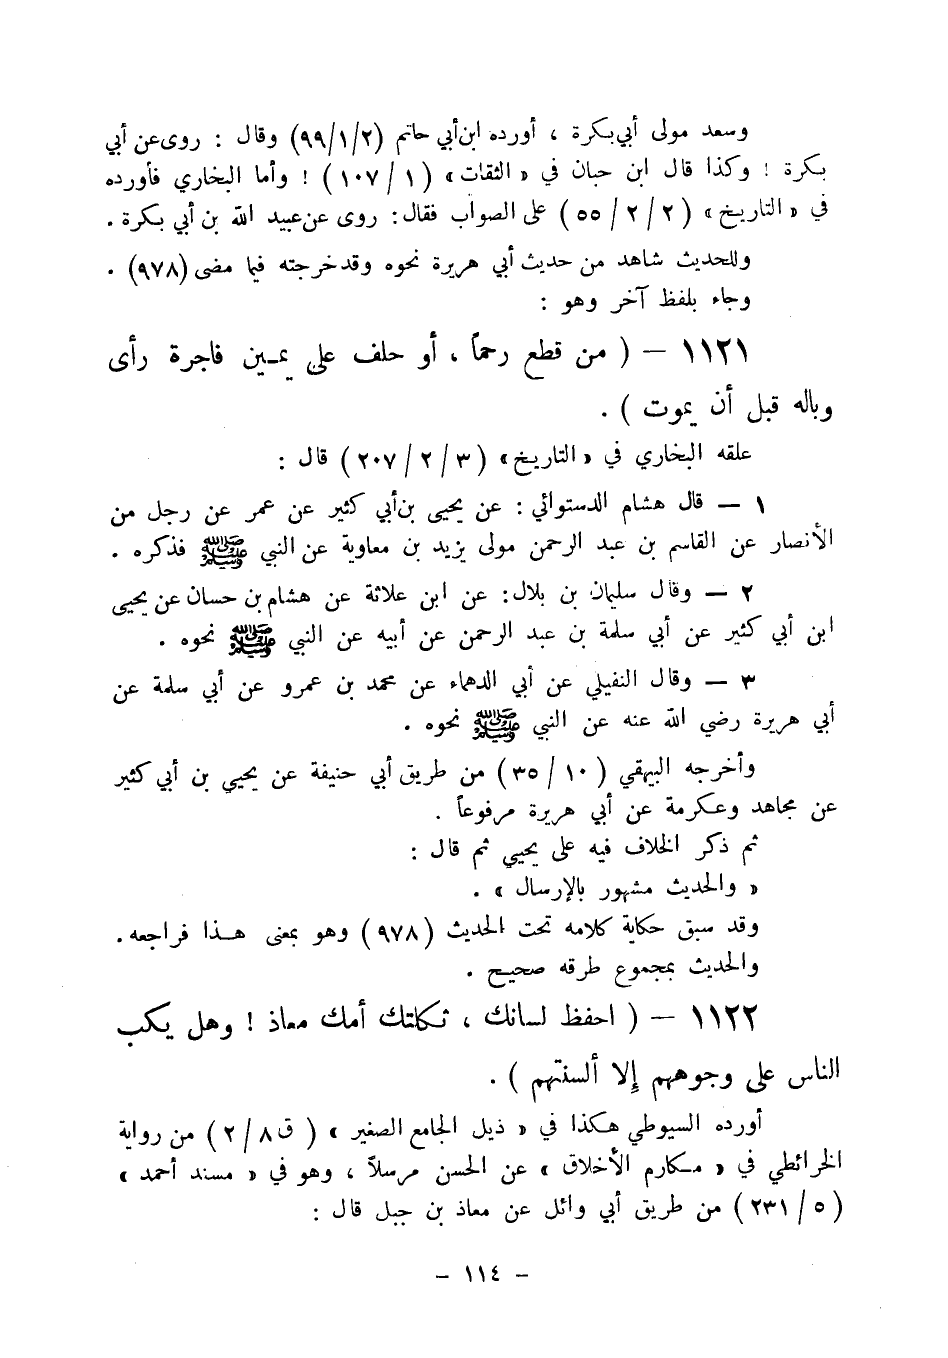 وسعد مولى أبي بكرة ، أورده ابن أبي حاتم (٩٩/١/٢) وقال : روى عن أبي
بكرة ! وكذا قال ابن حبان في « الثقات » ( ١ / ١٠٧ ) ! وأما البخاري فأورده
في « التاريخ » ( ٢ / ٢ / ٥٥ ) على الصواب فقال : روى عن عبيد الله بن أبي بكرة .
وللحديث شاهد من حديث أبي هريرة نحوه وقد خرجته فيما مضى (٩٧٨) .
وجاء بلفظ آخر وهو :
١١٢١ – ( من قطع رحماً ، أو حلف على يمين فاجرة رأى
وباله قبل أن يموت ) .
علقه البخاري في « التاريخ » ( ٣ / ٢ / ٢٠٧ ) قال :
١ – قال هشام الدستوائي : عن يحيى بن أبي كثير عن عمر عن رجل من
الأنصار عن القاسم بن عبد الرحمن مولى يزيد بن معاوية عن النبي ﷺ فذكره .
٢ – وقال سليمان بن بلال : عن ابن علاثة عن هشام بن حسان عن يحيى
ابن أبي كثير عن أبي سلمة بن عبد الرحمن عن أبيه عن النبي ﷺ نحوه .
٣ – وقال النفيلي عن أبي الدهماء عن محمد بن عمرو عن أبي سلمة عن
أبي هريرة رضي الله عنه عن النبي ﷺ نحوه .
وأخرجه البيهقي ( ١٠ / ٣٥ ) من طريق أبي حنيفة عن يحيي بن أبي كثير
عن مجاهد وعكرمة عن أبي هريرة مرفوعاً .
ثم ذكر الخلاف فيه على يحيي ثم قال :
« والحديث مشهور بالإرسال » .
وقد سبق حكاية كلامه تحت الحديث ( ٩٧٨ ) وهو بمعنى هذا فراجعه .
والحديث بمجموع طرقه صحيح .
١١٢٢ – ( احفظ لسانك ، ثكلتك أمك معاذ ! وهل يكب
الناس على وجوههم إلا ألسنتهم ) .
أورده السيوطي هكذا في « ذيل الجامع الصغير » ( ق ٨ / ٢ ) من رواية
الخرائطي في « مكارم الأخلاق » عن الحسن مرسلاً ، وهو في « مسند أحمد »
( ٥ / ٢٣١ ) من طريق أبي وائل عن معاذ بن جبل قال :
– ١١٤ –